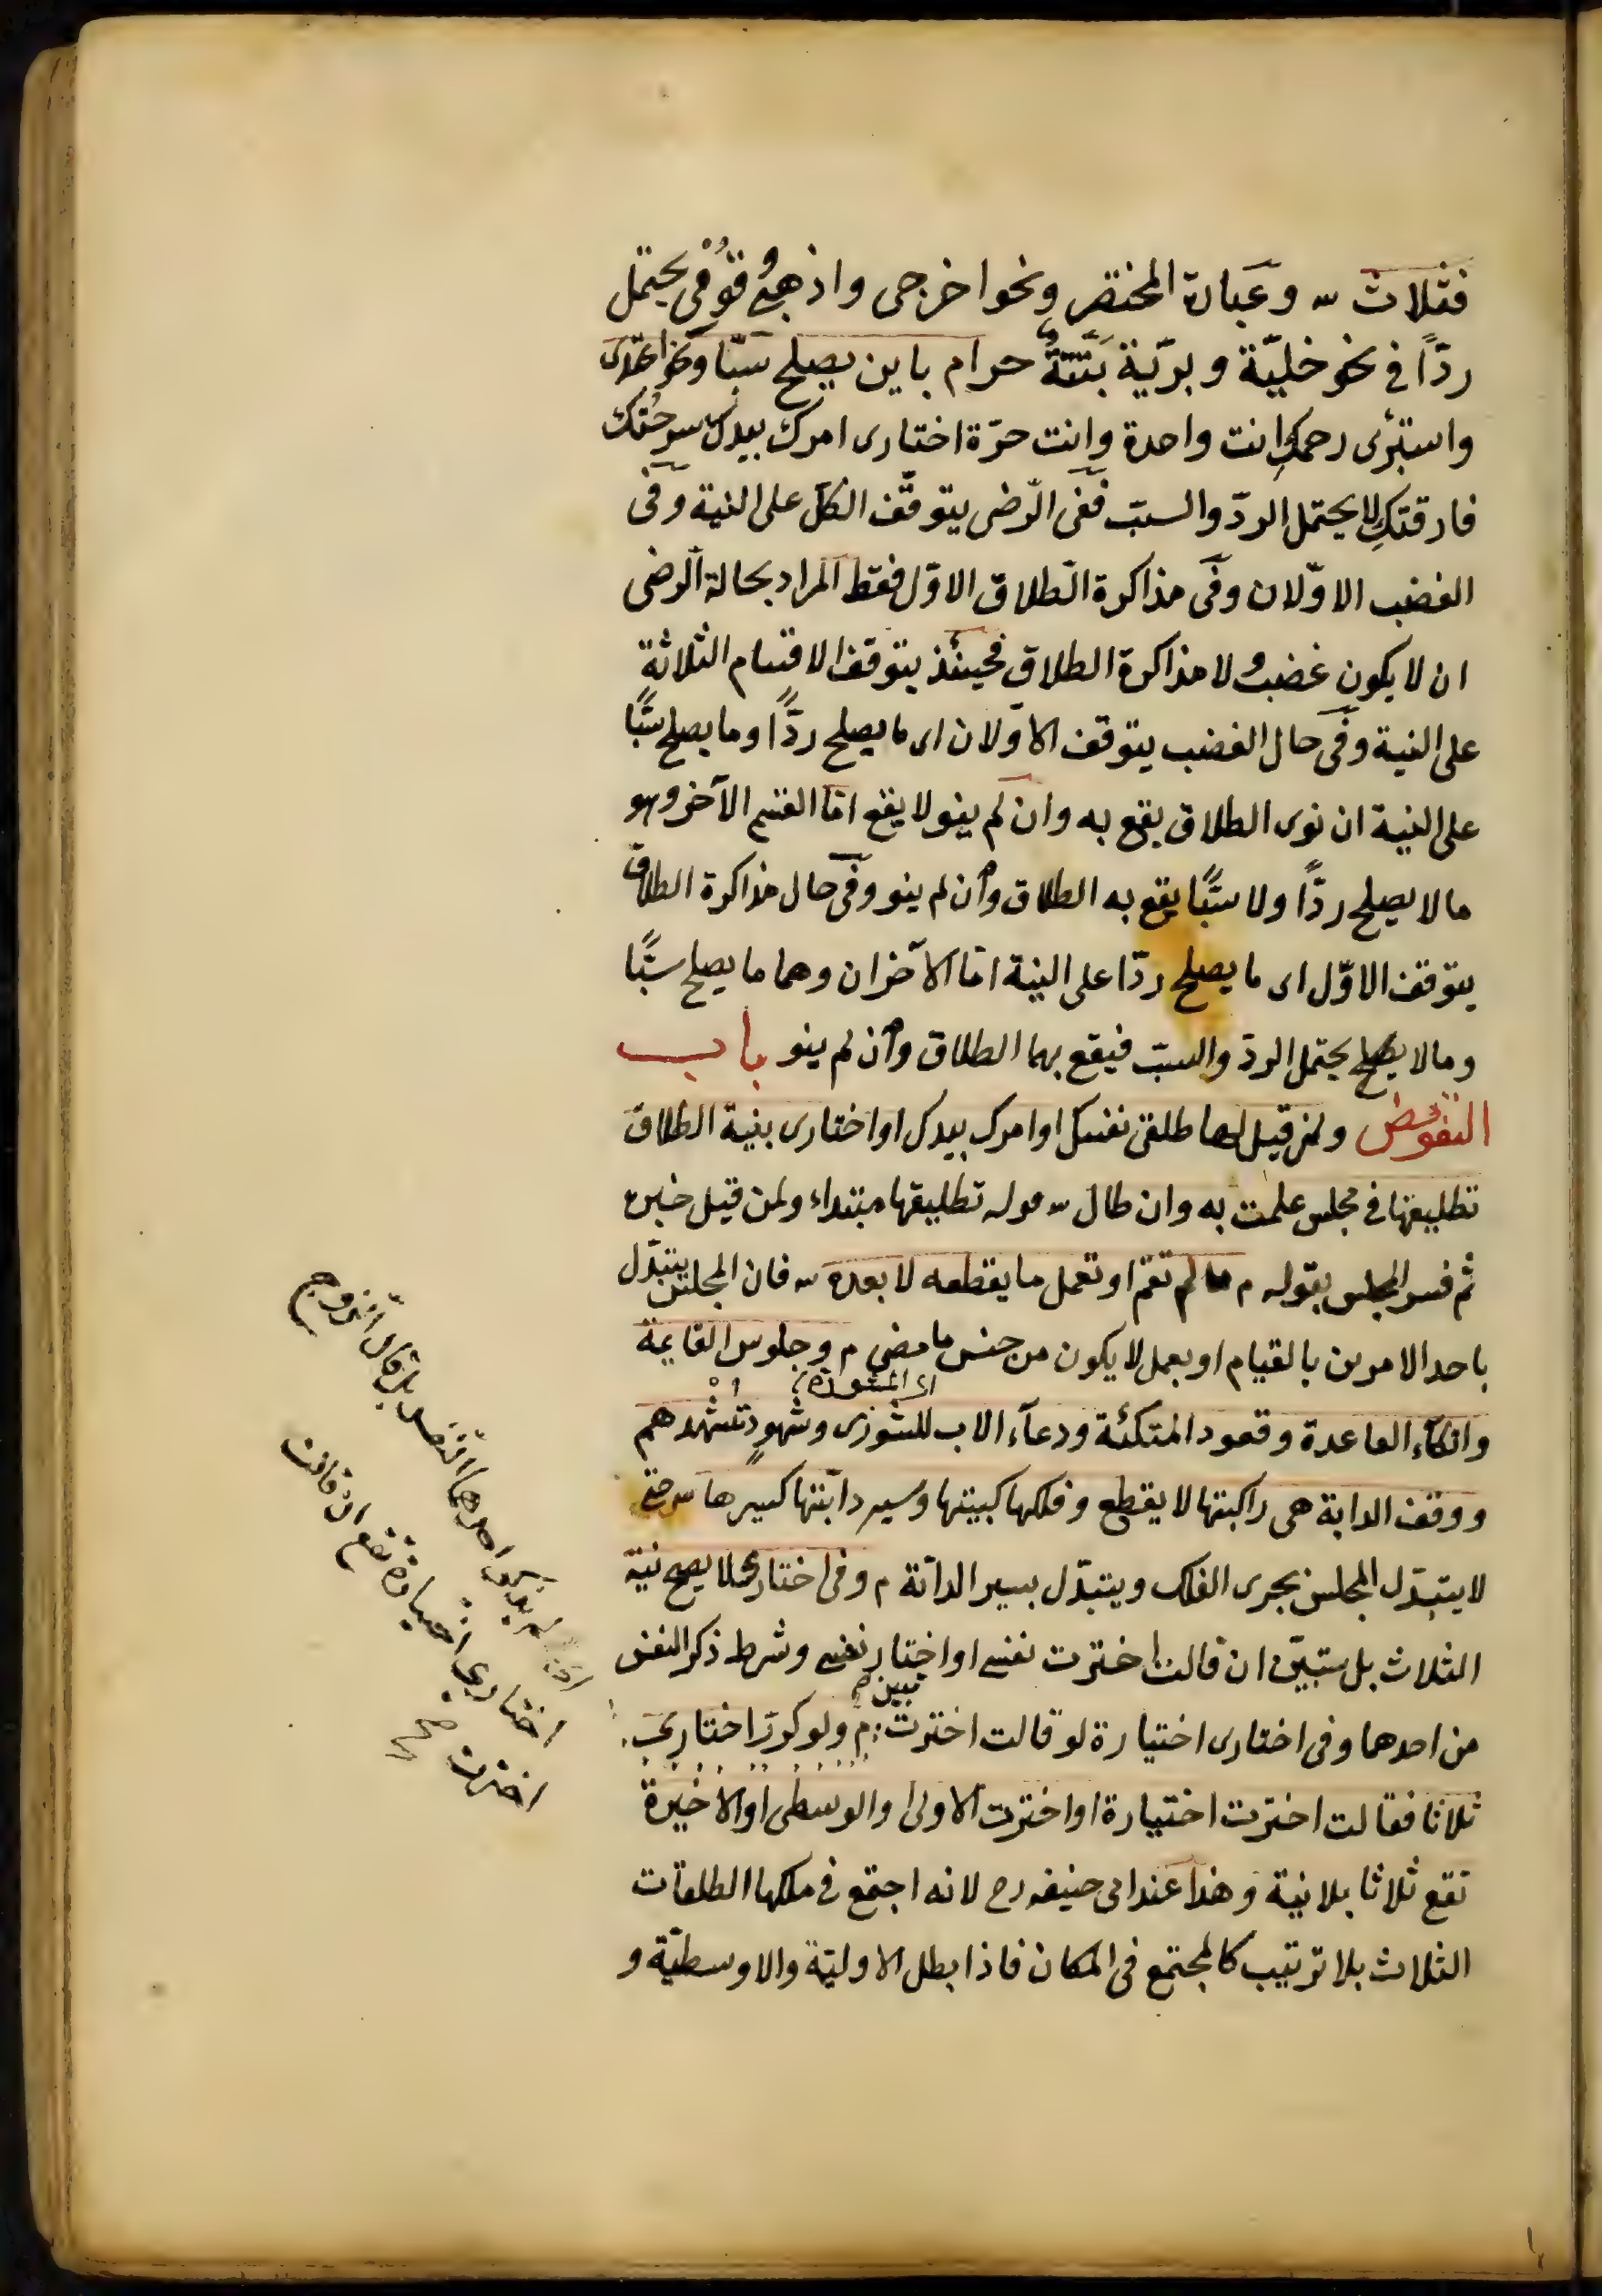 فثلاث ـه وعبارة المختصر ونحو اخرجى واذهبى وقومى يحتمل
ردّاً فى نحو خليّة وبريّة بتّة حرام باين يصلح سبّا ونحو اعتدى
واستبرئى رحمكِ انت واحدة وانت حرّة اختارى امرك بيدك سرحتك
فارقتكِ لا يحتمل الردّ والسبّ ففى الرّضى يتوقّف الكلّ على النية وفى
الغضب الاوّلان وفى مذاكرة الطّلاق الاوّل فقط المراد بحالة الرضى
ان لا يكون غضب ولا مذاكرة الطلاق فحينئذ يتوقف الاقسام الثلاثة
على النية وفى حال الغضب يتوقف الاوّلان اى ما يصلح ردّاً وما يصلح سبّاً
على النية ان نوى الطلاق يقع به وان لم ينو لا يقع امّا القسم الآخر وهو
ما لا يصلح ردّاً ولا سبّاً يقع به الطلاق وان لم ينو وفى حال مذاكرة الطلاق
يتوقف الاوّل اى ما يصلح ردّا على النية امّا الآخران وهما ما يصلح سبّاً
وما لا يحتمل الردّ والسبّ فيقع بهما الطلاق وان لم ينو باب
التفويض ولمن قيل لها طلقى نفسك او امرك بيدك او اختارى بنية الطلاق
تطليقها فى مجلس علمت به وان طال ـه قوله تطليقها مبتداء ولمن قيل خبره
ثم فسر المجلس بقوله م ما لم تقم او تعمل ما يقطعه لا بعده ـه فان المجلس يتبدّل
باحد الامرين بالقيام او بعمل لا يكون من جنس ما مضى م وجلوس القايمة
واتكاء القاعدة وقعود المتكئة ودعاء الاب للشورى وشهود تشهدهم
اى المشورة
ووقف الدابة هى راكبتها لا يقطع وفلكها كبيتها وسير دابّتها كسيرها ـه حتى
لا يتبدّل المجلس بجرى الفلك ويتبدّل بسير الدابّة م وفى اختارى لا يصح نية
الثلاث بل تبين ان قالت اخترت نفسى او اختار نفسى وشرط ذكر النفس
من احدهما وفى اختارى اختيارة لو قالت اخترت تبين م ولو كرّر اختارى
ثلاثا فقالت اخترت اختيارة او اخترت الاولى او الوسطى او الاخيرة
تقع ثلاثا بلا نية وهذا عند ابى حنيفه رح لانه اجتمع فى ملكها الطلقات
الثلاث بلا ترتيب كالمجتمع فى المكان فاذا بطل الاوليّة والاوسطيّة و
اختارى اختيارة تقع ان قالت
اخترت صح